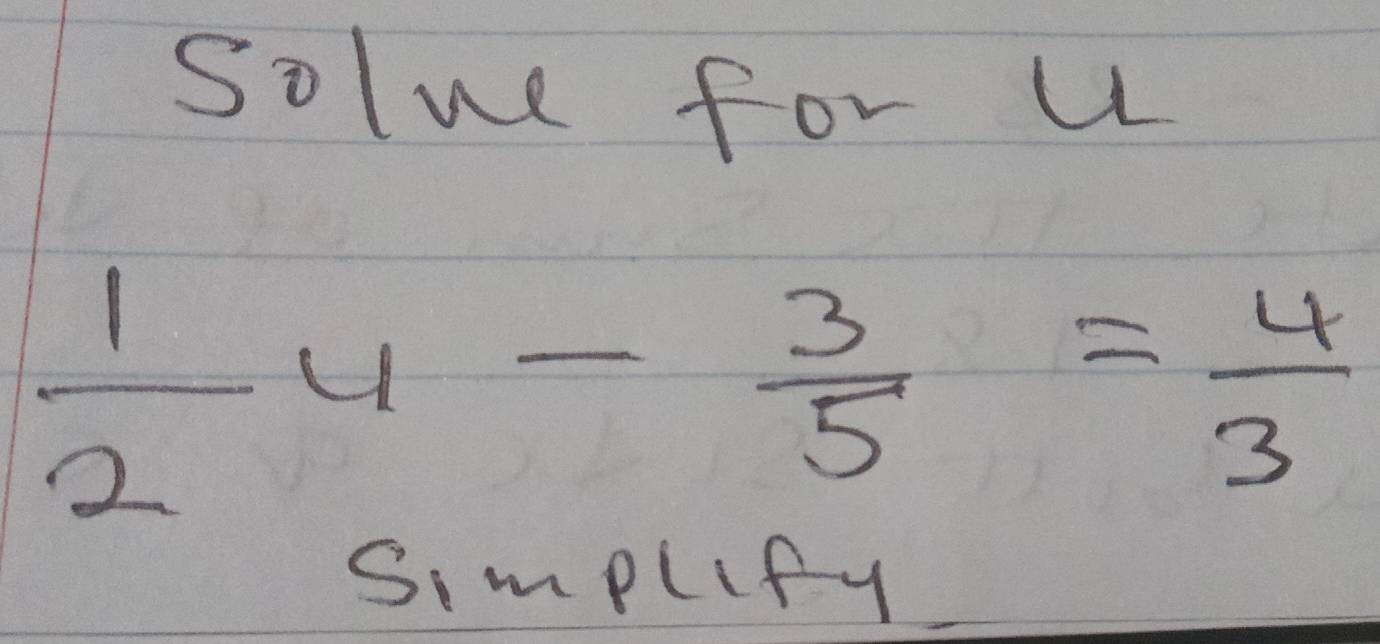 Solve for u
1/2 u - 3/5 = 4/3
Simplify